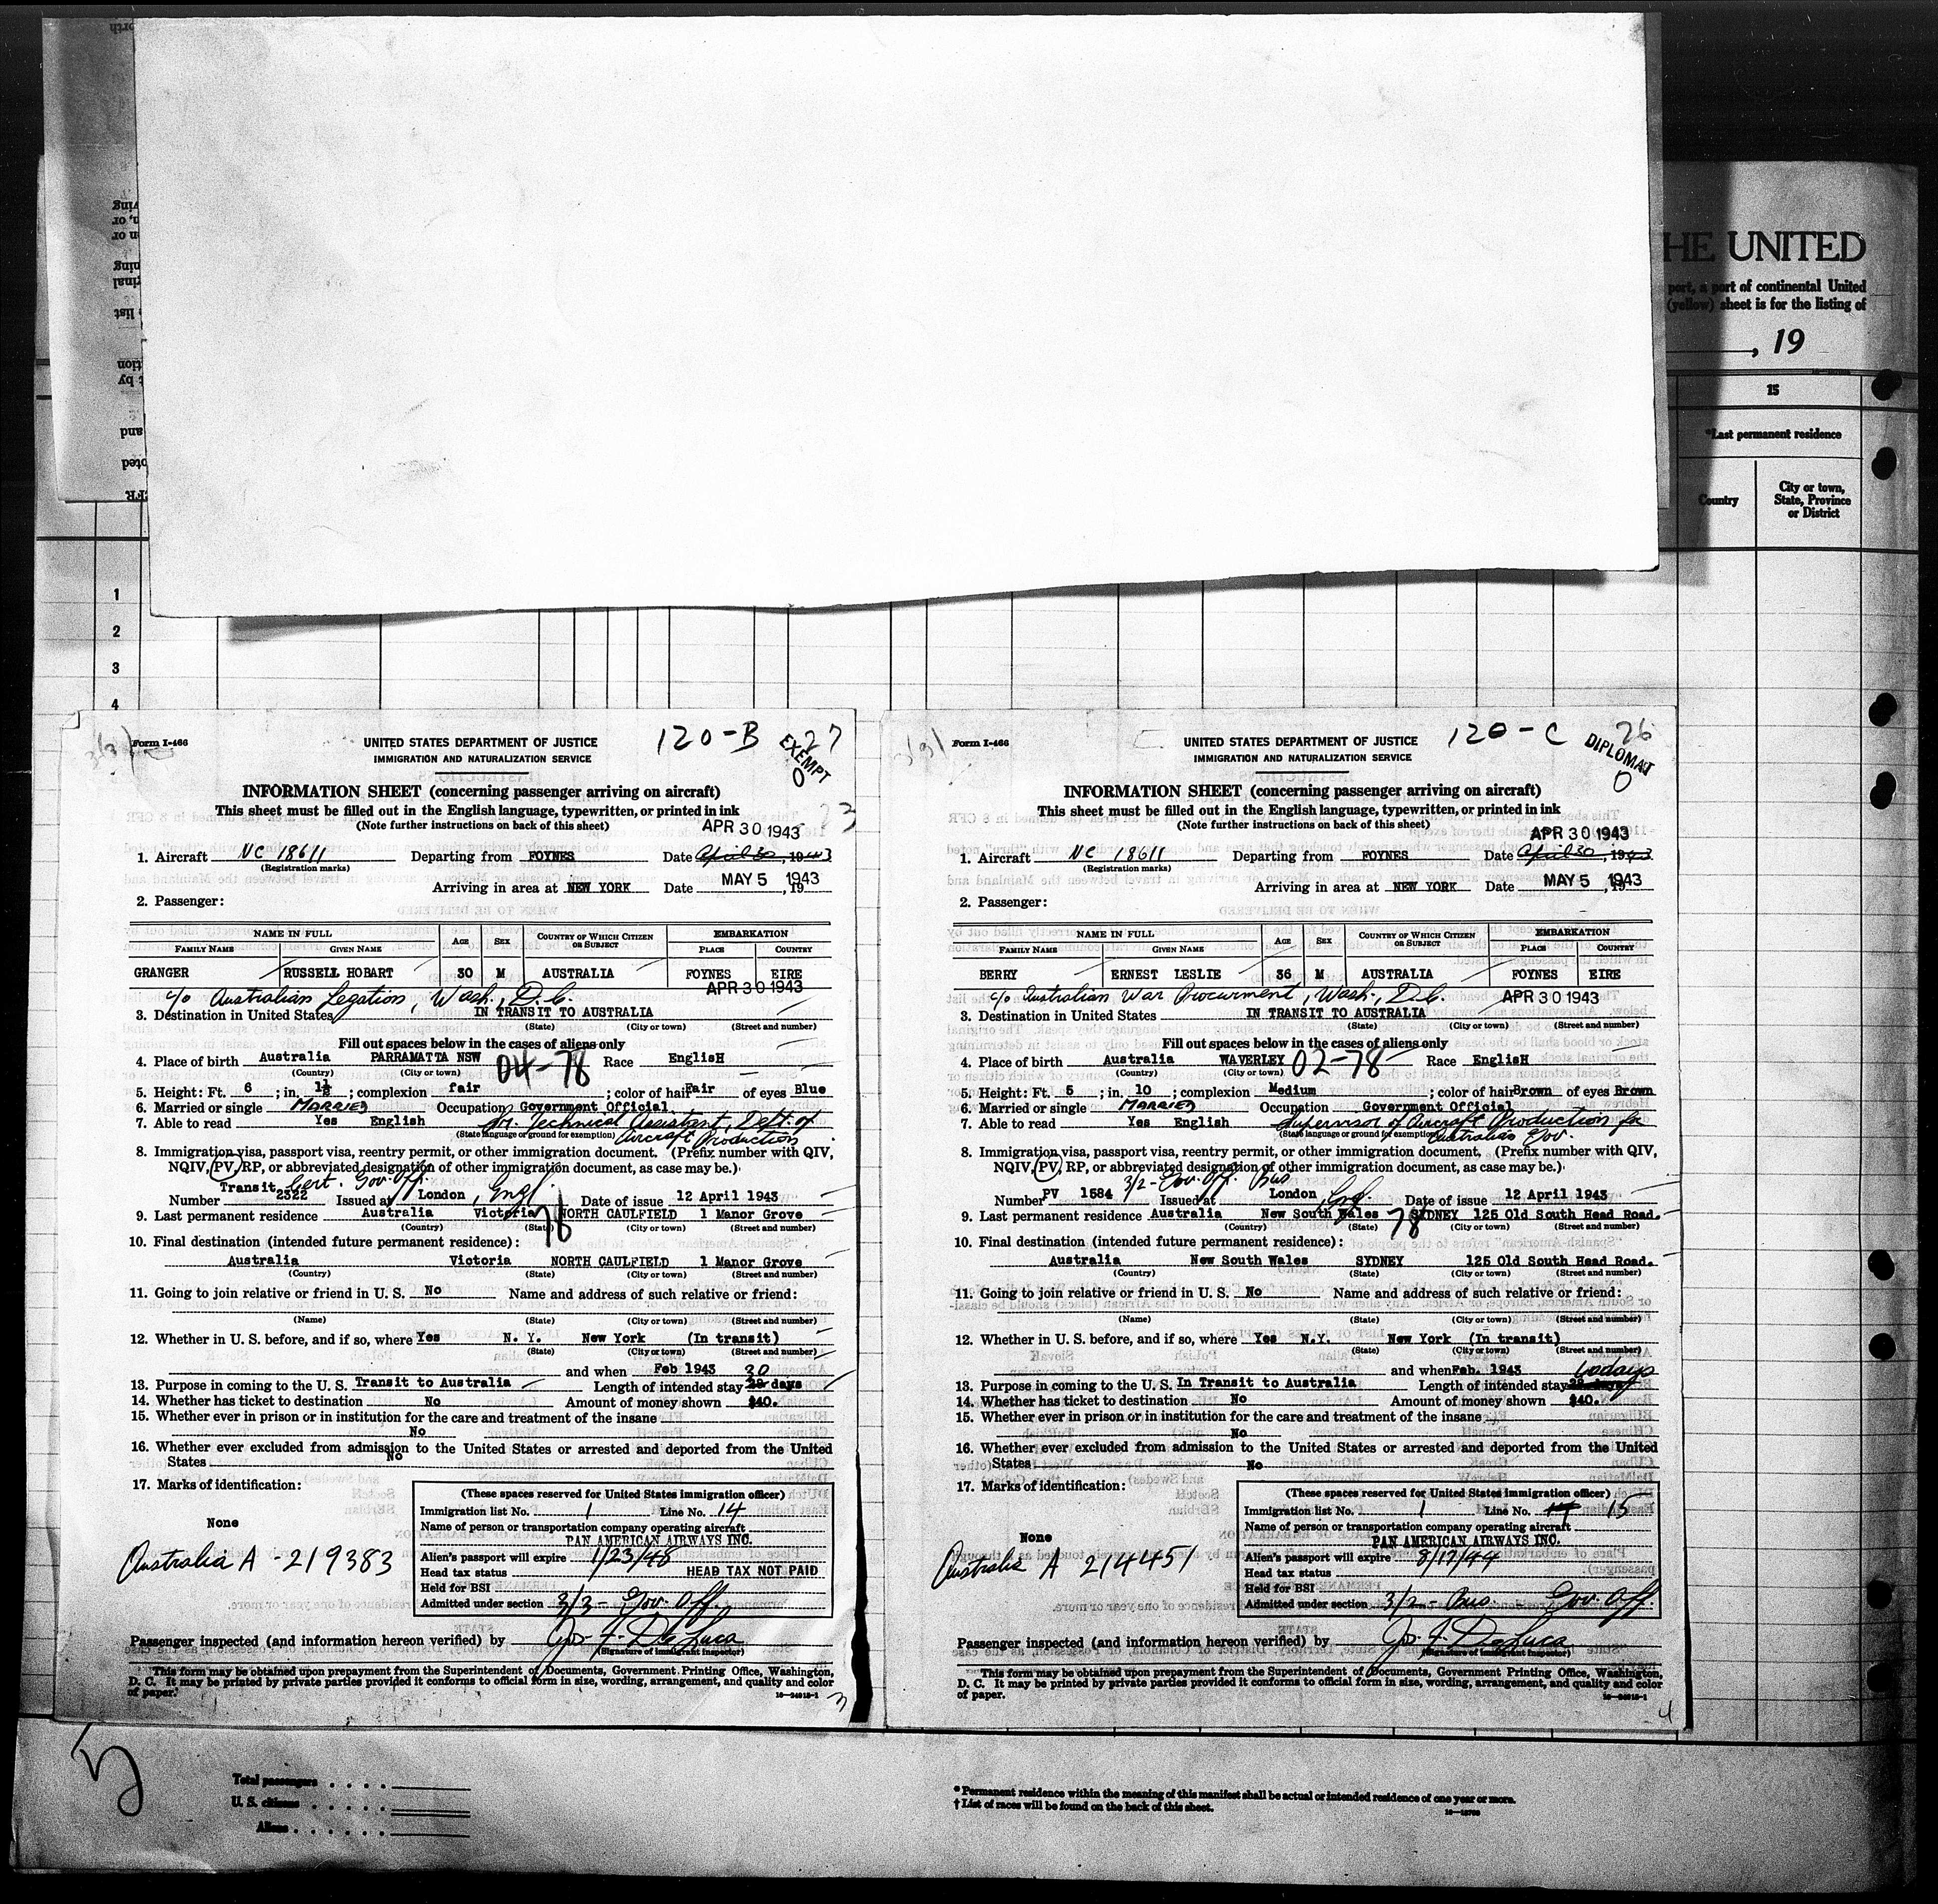 HE UNITED
port, a port of continental United
(yellow) sheet is for the listing of
, 19
15
*Last permanent residence
Country
City or town,
State, Province
or District
1
2
3
4
Form I-466
120-B
27
EXEMPT
0
UNITED STATES DEPARTMENT OF JUSTICE
IMMIGRATION AND NATURALIZATION SERVICE
INFORMATION SHEET (concerning passenger arriving on aircraft)
This sheet must be filled out in the English language, typewritten, or printed in ink
(Note further instructions on back of this sheet)
23
APR 30 1943
1. Aircraft NC 18611 Departing from FOYNES Date April 30, 1943
(Registration marks)
Arriving in area at NEW YORK Date MAY 5 1943, 19
2. Passenger:
NAME IN FULL AGE SEX COUNTRY OF WHICH CITIZEN OR SUBJECT EMBARKATION
FAMILY NAME GIVEN NAME PLACE COUNTRY
GRANGER RUSSELL HOBART 30 M AUSTRALIA FOYNES EIRE
APR 30 1943
c/o Australian Legation, Wash., D.C.
3. Destination in United States IN TRANSIT TO AUSTRALIA
(State) (City or town) (Street and number)
Fill out spaces below in the cases of aliens only
4. Place of birth Australia PARRAMATTA NSW 04-78 Race EnglisH
(Country) (City or town)
5. Height: Ft. 6 ; in. 1½ ; complexion fair ; color of hair Fair of eyes Blue
6. Married or single MARRIED Occupation Government Official
7. Able to read Yes English Sr. Technical Assistant, Dept. of
(State language or ground for exemption) Aircraft Production
8. Immigration visa, passport visa, reentry permit, or other immigration document. (Prefix number with QIV,
NQIV, PV, RP, or abbreviated designation of other immigration document, as case may be.)
Transit Cert. Gov. Off.
Number 2322 Issued at London, Engl. Date of issue 12 April 1943
9. Last permanent residence Australia Victoria 78 NORTH CAULFIELD 1 Manor Grove
(Country) (State) (City or town) (Street and number)
10. Final destination (intended future permanent residence):
Australia Victoria NORTH CAULFIELD 1 Manor Grove
(Country) (State) (City or town) (Street and number)
11. Going to join relative or friend in U. S. No Name and address of such relative or friend:
(Name) (State) (City or town) (Street and number)
12. Whether in U. S. before, and if so, where Yes N. Y. New York (In transit)
(State) (City or town) (Street and number)
and when Feb 1943 30
13. Purpose in coming to the U. S. Transit to Australia Length of intended stay days
14. Whether has ticket to destination No Amount of money shown $40.
15. Whether ever in prison or in institution for the care and treatment of the insane
No
16. Whether ever excluded from admission to the United States or arrested and deported from the United
States No
17. Marks of identification:
None
Australia A - 219383
(These spaces reserved for United States immigration officer)
Immigration list No. 1 Line No. 14
Name of person or transportation company operating aircraft
PAN AMERICAN AIRWAYS INC.
Alien's passport will expire 1/23/48
Head tax status HEAD TAX NOT PAID
Held for BSI
Admitted under section 3/3 - Gov. Off.
Passenger inspected (and information hereon verified) by Jos. F. DeLuca
(Signature of immigrant inspector)
This form may be obtained upon prepayment from the Superintendent of Documents, Government Printing Office, Washington,
D. C. It may be printed by private parties provided it conforms to official form in size, wording, arrangement, and quality and color
of paper.
3
Form I-466
120-C
26
DIPLOMAT
0
UNITED STATES DEPARTMENT OF JUSTICE
IMMIGRATION AND NATURALIZATION SERVICE
INFORMATION SHEET (concerning passenger arriving on aircraft)
This sheet must be filled out in the English language, typewritten, or printed in ink
(Note further instructions on back of this sheet)
APR 30 1943
1. Aircraft NC 18611 Departing from FOYNES Date April 30, 1943
(Registration marks)
Arriving in area at NEW YORK Date MAY 5 1943, 19
2. Passenger:
NAME IN FULL AGE SEX COUNTRY OF WHICH CITIZEN OR SUBJECT EMBARKATION
FAMILY NAME GIVEN NAME PLACE COUNTRY
BERRY ERNEST LESLIE 36 M AUSTRALIA FOYNES EIRE
APR 30 1943
c/o Australian War Procurment, Wash., D.C.
3. Destination in United States IN TRANSIT TO AUSTRALIA
(State) (City or town) (Street and number)
Fill out spaces below in the cases of aliens only
4. Place of birth Australia WAVERLEY 02-78 Race EnglisH
(Country) (City or town)
5. Height: Ft. 5 ; in. 10 ; complexion Medium ; color of hair Brown of eyes Brown
6. Married or single MARRIED Occupation Government Official
7. Able to read Yes English Supervisor of Aircraft Production for
(State language or ground for exemption) Australian Gov.
8. Immigration visa, passport visa, reentry permit, or other immigration document. (Prefix number with QIV,
NQIV, PV, RP, or abbreviated designation of other immigration document, as case may be.)
3/2 - Gov. Off. Bus
Number PV 1584 Issued at London, Engl. Date of issue 12 April 1943
9. Last permanent residence Australia New South Wales 78 SYDNEY 125 Old South Head Road.
(Country) (State) (City or town) (Street and number)
10. Final destination (intended future permanent residence):
Australia New South Wales SYDNEY 125 Old South Head Road.
(Country) (State) (City or town) (Street and number)
11. Going to join relative or friend in U. S. No Name and address of such relative or friend:
(Name) (State) (City or town) (Street and number)
12. Whether in U. S. before, and if so, where Yes N.Y. New York (In transit)
(State) (City or town) (Street and number)
and when Feb. 1943 60 days
13. Purpose in coming to the U. S. In Transit to Australia Length of intended stay
14. Whether has ticket to destination No Amount of money shown $40.
15. Whether ever in prison or in institution for the care and treatment of the insane
No
16. Whether ever excluded from admission to the United States or arrested and deported from the United
States No
17. Marks of identification:
None
Australia A 214451
(These spaces reserved for United States immigration officer)
Immigration list No. 1 Line No. 14 15
Name of person or transportation company operating aircraft
PAN AMERICAN AIRWAYS INC.
Alien's passport will expire 8/17/44
Head tax status
Held for BSI
Admitted under section 3/2 - Bus. Gov. Off.
Passenger inspected (and information hereon verified) by Jos. F. DeLuca
(Signature of immigrant inspector)
This form may be obtained upon prepayment from the Superintendent of Documents, Government Printing Office, Washington,
D. C. It may be printed by private parties provided it conforms to official form in size, wording, arrangement, and quality and color
of paper.
4
5
Total passengers
U. S. citizens
Aliens
* Permanent residence within the meaning of this manifest shall be actual or intended residence of one year or more.
† List of races will be found on the back of this sheet.